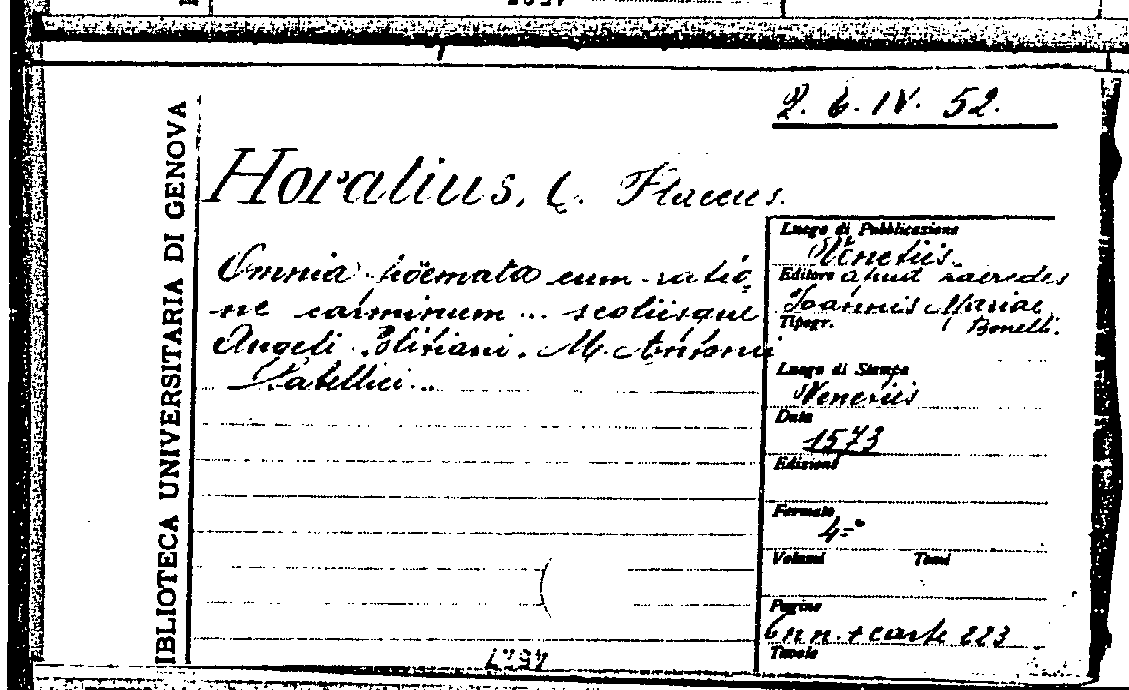 2. 6. IV. 52.
BIBLIOTECA UNIVERSITARIA DI GENOVA
Horatius, Q. Flaccus.
Omnia poëmata cum ratio-
ne carminum ... scoliisque
Angeli Politiani. M. Antonii
Sabellici...
Luogo di Pubblicazione
Venetiis.
Editore apud haeredes
Joannis Mariae
Tipogr. Bonelli.
Luogo di Stampa
Venetiis
Data
1573
Edizione
Formato
4=°
Volumi Tomi
Pagine
6 nn. + carte 223
Tavole